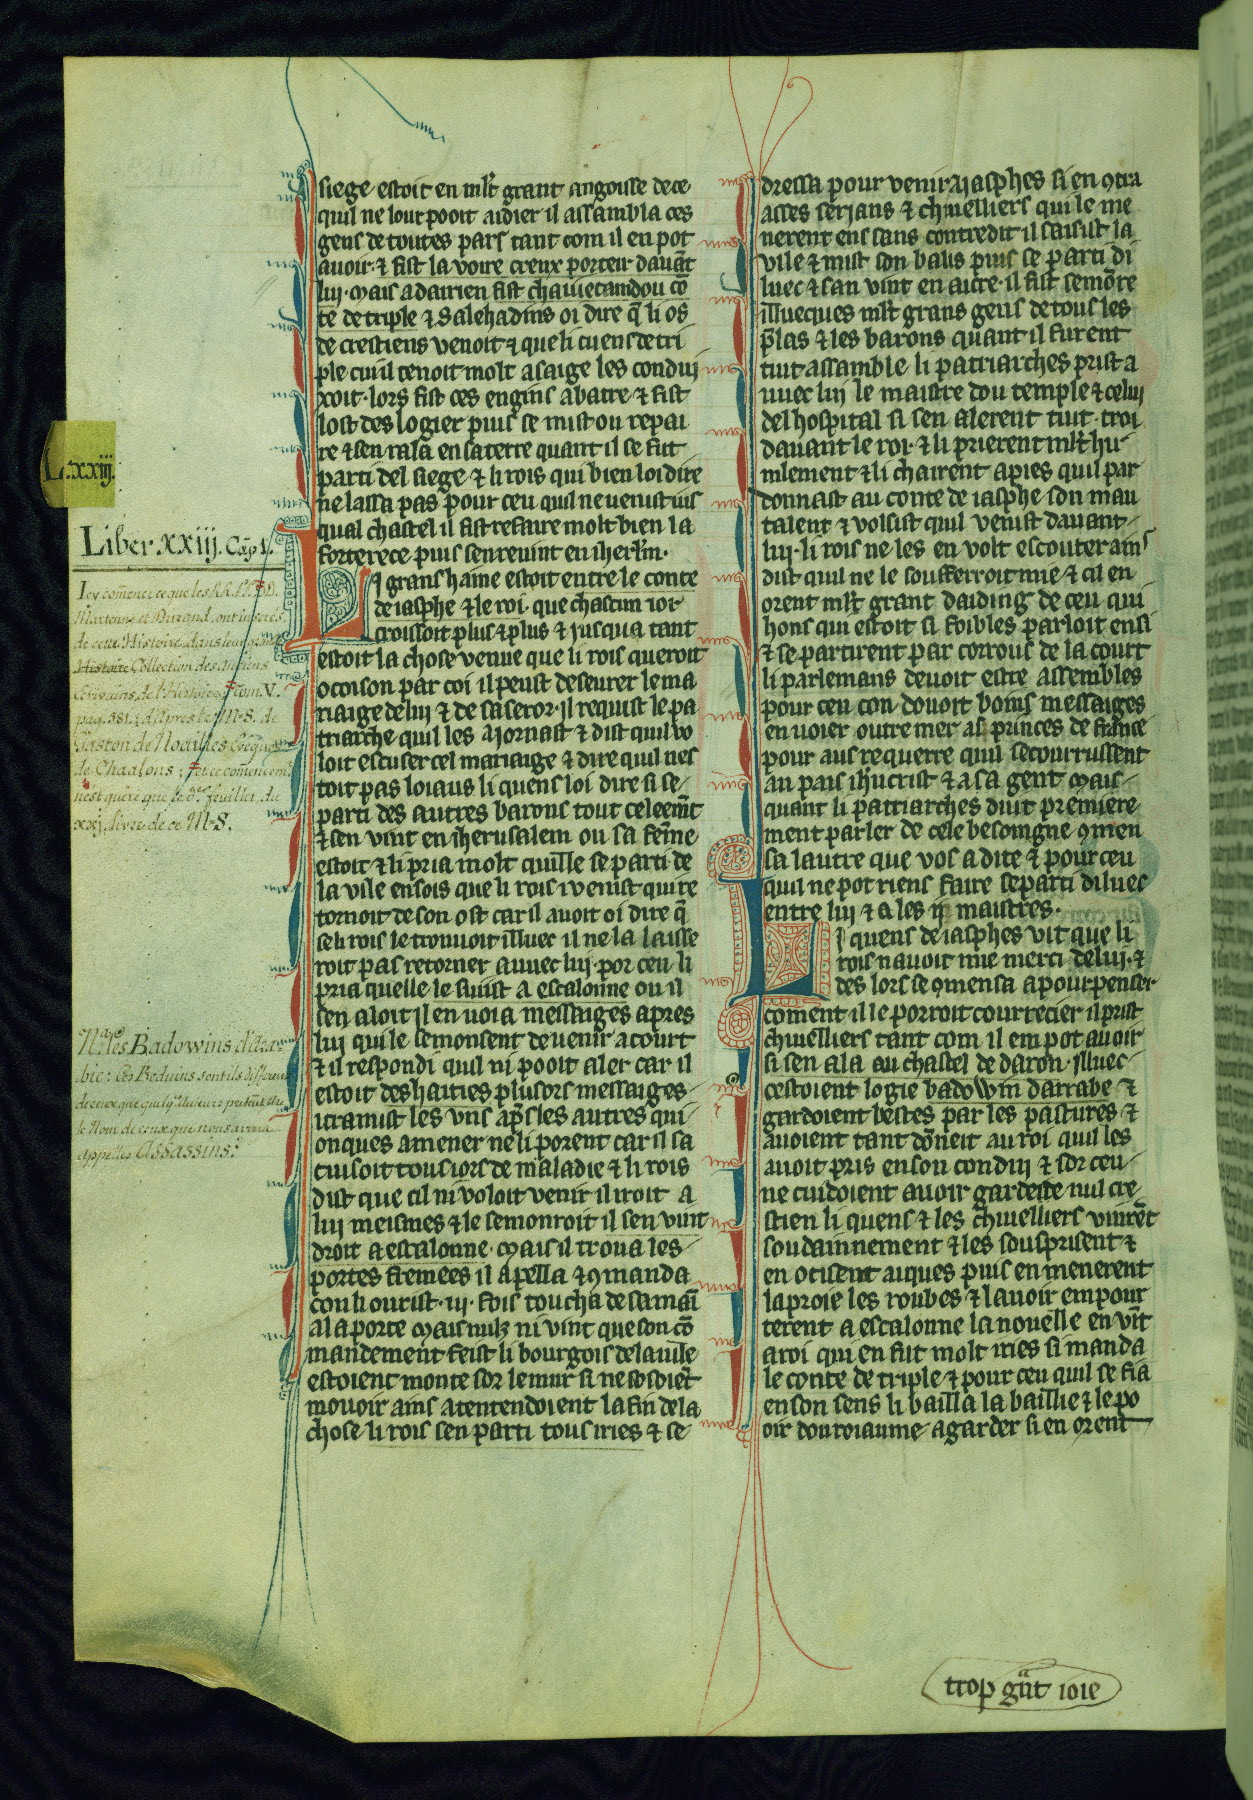 siege estoit en mlt grant angoisse de ce
quil ne lour pooit aidier il assambla ces
gens de toutes pars tant com il en pot
avoir ⁊ fist la voire creux porteir davāt
lui. Mais a dairien fist chaiuetaindou cō
te de triple ⁊ Salehadins oi dire q̄ li os
de crestiens venoit ⁊ que li cuens de tri
ple cui il tenoit molt a saige les condui
xoit. lors fist ces engins abatre ⁊ fist
lost des logier puis se mist ou repai
re ⁊ sen rala en sa terre quant il se fut
parti del siege ⁊ li rois qui bien loi dire
ne lassa pas pour ceu quil ne venist iu s
qual chastel il fist refaire molt bien la
forterece puis sen revint en iherlm.
Li grans haine estoit entre le conte
de iasphe ⁊ le roi. que chascun ior
croissoit plus ⁊ plus ⁊ jusqua tant
estoit la chose venue que li rois queroit
ocoison par coi il peust deseurer le ma
riaige de lui ⁊ de sa seror. il requist le pa
triarche quil les ajornast ⁊ dist quil vo
loit escuser cel mariaige ⁊ dire quil nes
toit pas loiaus li quens loi dire si se
parti des autres barons tout celeemt
⁊ sen vint en iherusalem ou sa feme
estoit ⁊ li pria molt quille se parti de
la ville ensois que li rois i venist qui re
tornoit de son ost car il avoit oi dire q̄
se li rois le trouuoit illuec il ne la laisse
roit pas retorner auuec lui. por ceu li
pria quelle le suist a escalonne ou il
sen aloit Il en voia messaiges apres
lui qui le semonsent de venir a court
⁊ il respondi quil ni pooit aler car il
estoit deshaities plusors messaiges
i tramist les vns apres les autres qui
onques amener ne li porent car il sa
cuisoit tous iors de maladie ⁊ li rois
dist que cil ni voloit venir il iroit a
lui meismes ⁊ le semonroit il sen vint
droit a escalonne. Mais il troua les
portes fremees il apella ⁊ 9manda
con li ourist. iij. fois toucha de sa maī
a la porte Mais nulz ni vint que son cō
mandement feist li bourgois de la uille
estoient monte sor le mur si ne sosoiēt
mouoir ains atentendoient la fin de la
chose li rois sen parti tous iries ⁊ se
dressa pour venir a jasphes si en 9tra
asses serjans ⁊ chiuelliers qui le me
nerent ens sans contredit il saisist la
vile ⁊ mist son balis puis se parti di
luec ⁊ san vint en aicre. il fist semōre
illueques mlt grans gens de tous les
p̄las ⁊ les barons quant il furent
tuit assamble li patriarches prist a
uuec lui le maistre dou temple ⁊ celui
del hospital si sen alerent tuit. troi
davant le roi. ⁊ li prierent mlt hu
mlement ⁊ li chairent a pies quil par
donnast au conte de iasphe son mau
talent ⁊ volsist quil venist davant
lui. li rois ne les en volt escouter ains
dist quil ne le soufferroit mie ⁊ cil en
orent mlt grant daiding de ceu qui
hons qui estoit si foibles parloit ensi
⁊ se partirent par corrous de la court
li parlemans devoit estre assembles
pour ceu con douoit boins messaiges
en voier outre mer as princes de france
pour aus requerre quil secourrussent
au pais ihucrist ⁊ a sa gent Mais
quant li patriarches duit premiere
ment parler de cele besoingne 9men
sa lautre que vos a dite ⁊ pour ceu
quil ne pot riens faire se parti diluec
entre lui ⁊ a les ij maistres.
Li quens de iasphes vit que li
rois navoit mie merci de lui. ⁊
des lors se 9mensa a pourpenser
coment il le porroit courrecier il prist
chiuelliers tant com il em pot avoir
si sen ala au chastel de daron. illuec
cestoient logie badowin darrabe ⁊
gardoient bestes par les pastures ⁊
avoient tant dōneit au roi quil les
avoit pris en son condui ⁊ sor ceu
ne cuidoient avoir gardeite nul cre
stien li quens ⁊ les chiuelliers vinrēt
soudainnement ⁊ les sousprisent ⁊
en ocisent aiques puis en menerent
la proie les roubes ⁊ lavoir empour
terent a escalonne la nouelle en vīt
a roi qui en fut molt iries si manda
le conte de triple ⁊ pour ceu quil se fia
en son sens li bailla la baillie ⁊ le po
oir dou roiaume a garder si en orent
trop gnt ioie
L. xxiij.
Liber xxiij. Cap. 1.
Icy comence ce que les RR. PP. DD.
Martenne et Durand, ont inseré
de cette Histoire dans leur
Histoire Collection des anciens
Ecrivains de l'Histoire. Tom. V.
pag. 581. d'apres le M-S. de
Gaston de Noailles Evêque
de Chaalons; et ce comencemt
n'est quère que le feuillet du
xxj. livre de ce M-S.
Na. les Badowins d'Ara
bie: Ces Beduins sont ils differens
de ceux que quelq. Auteurs
le Nom de ceux que nous avons
appellés Assassins.